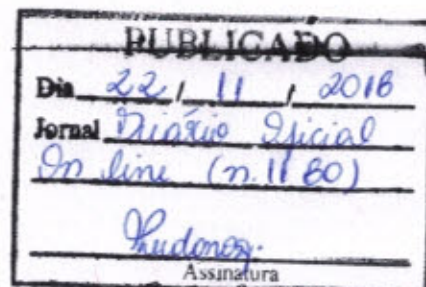 PUBLICADO
Dia 22 / 11 / 2018
Jornal Diário Oficial
On line (n. 1180)
Assinatura